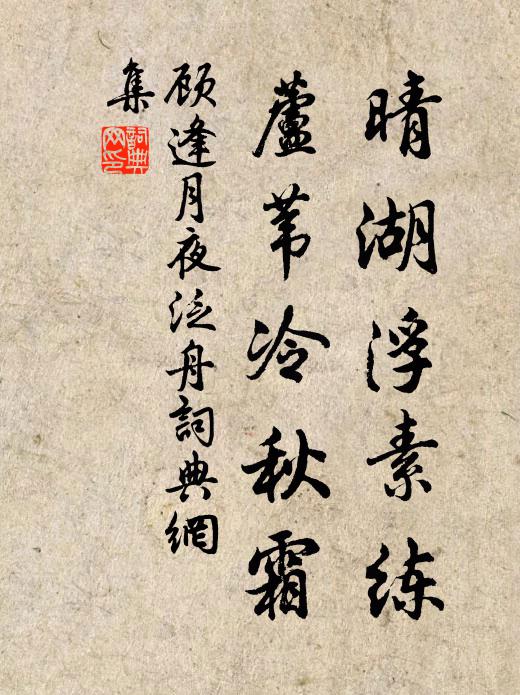 晴湖浮素練
蘆葦冷秋霜
顾逢月夜泛舟詞典網
集
詞典
网印